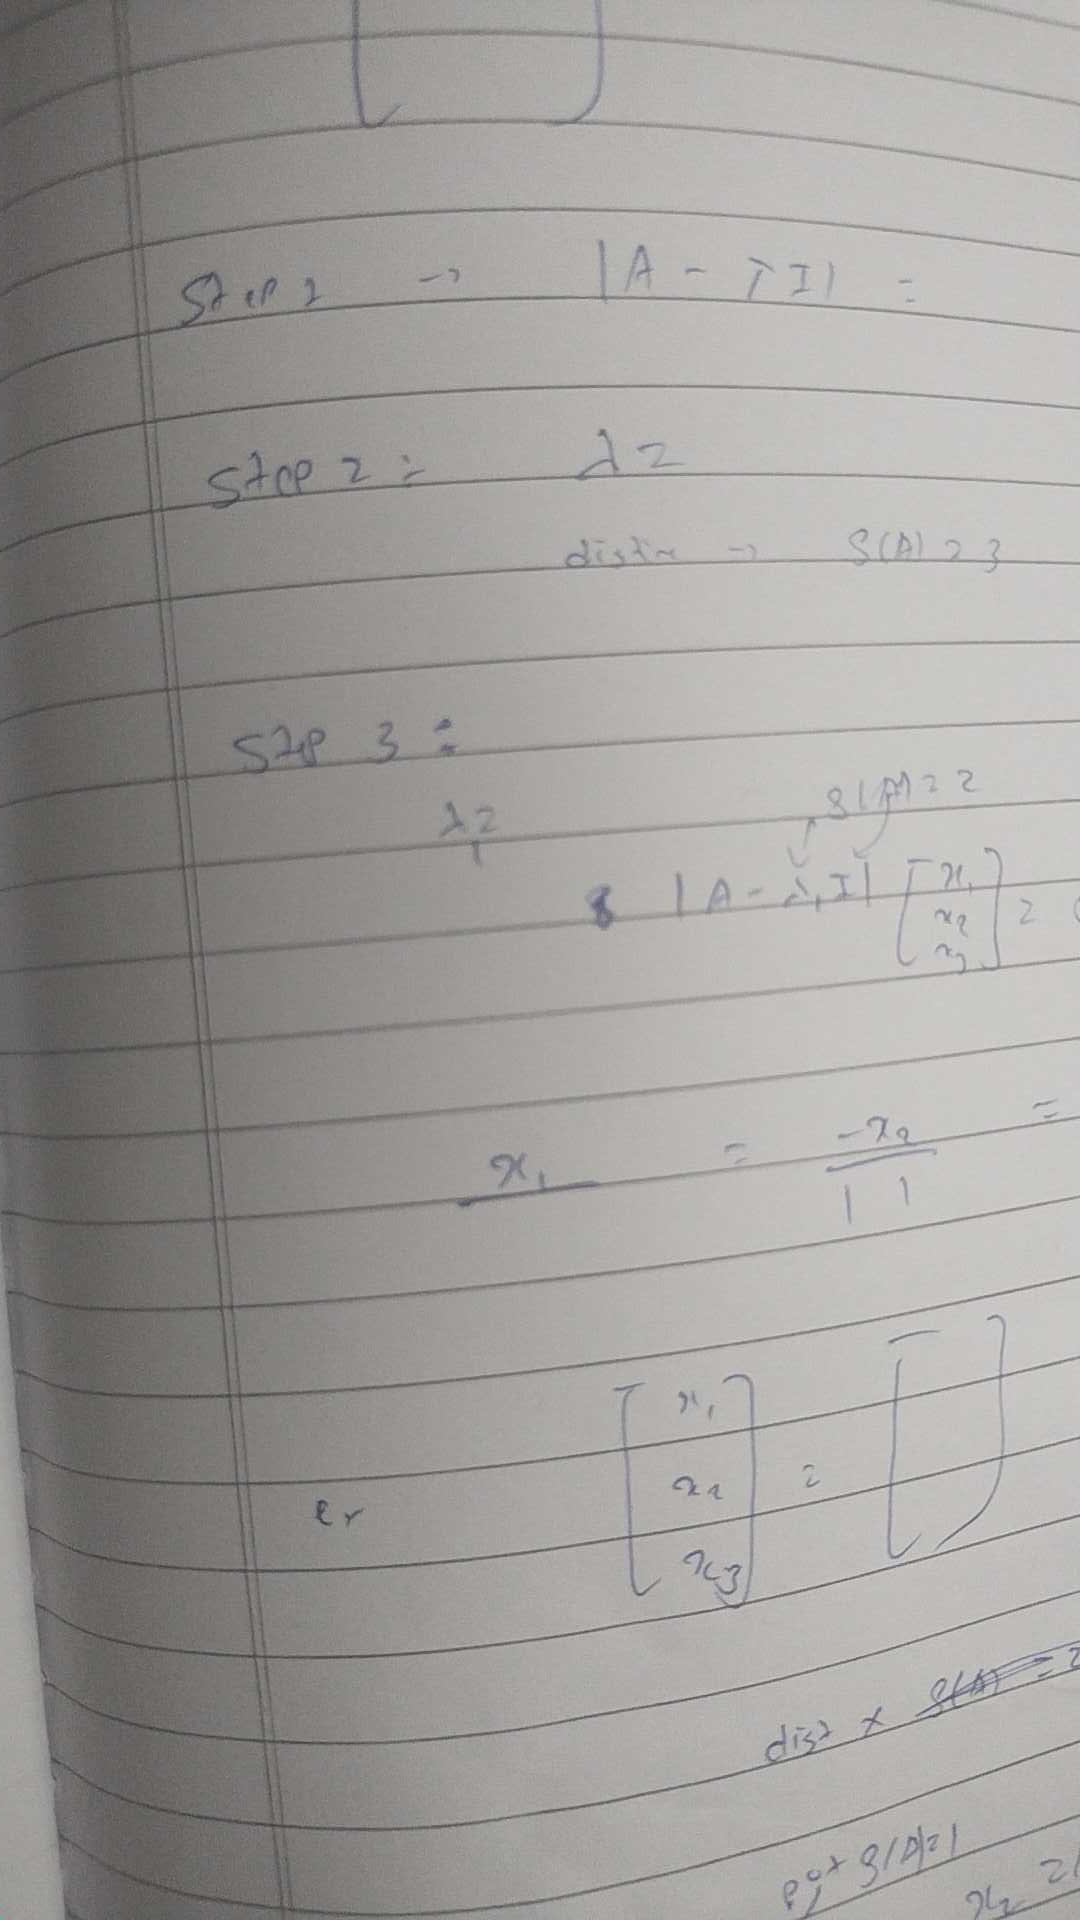 Step 1 → |A - λI| =
Step 2 = λ =
distin → ρ(A) = 3
Step 3 :
λ =
ρ(A) = 2
|A - λ₁I| [x₁ x₂ x₃] =
x₁ = -x₂ / | | =
er [x₁ x₂ x₃] = [ ]
dist x ρ(A) = 2
ρ(A) = 1